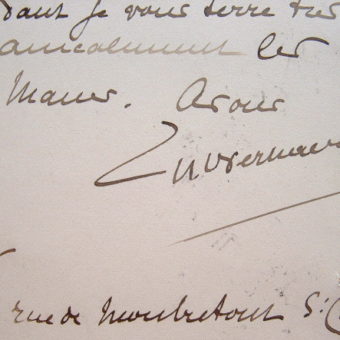 dant je vous serre très
amicalement les
mains. A vous
rue de Montretout St. C